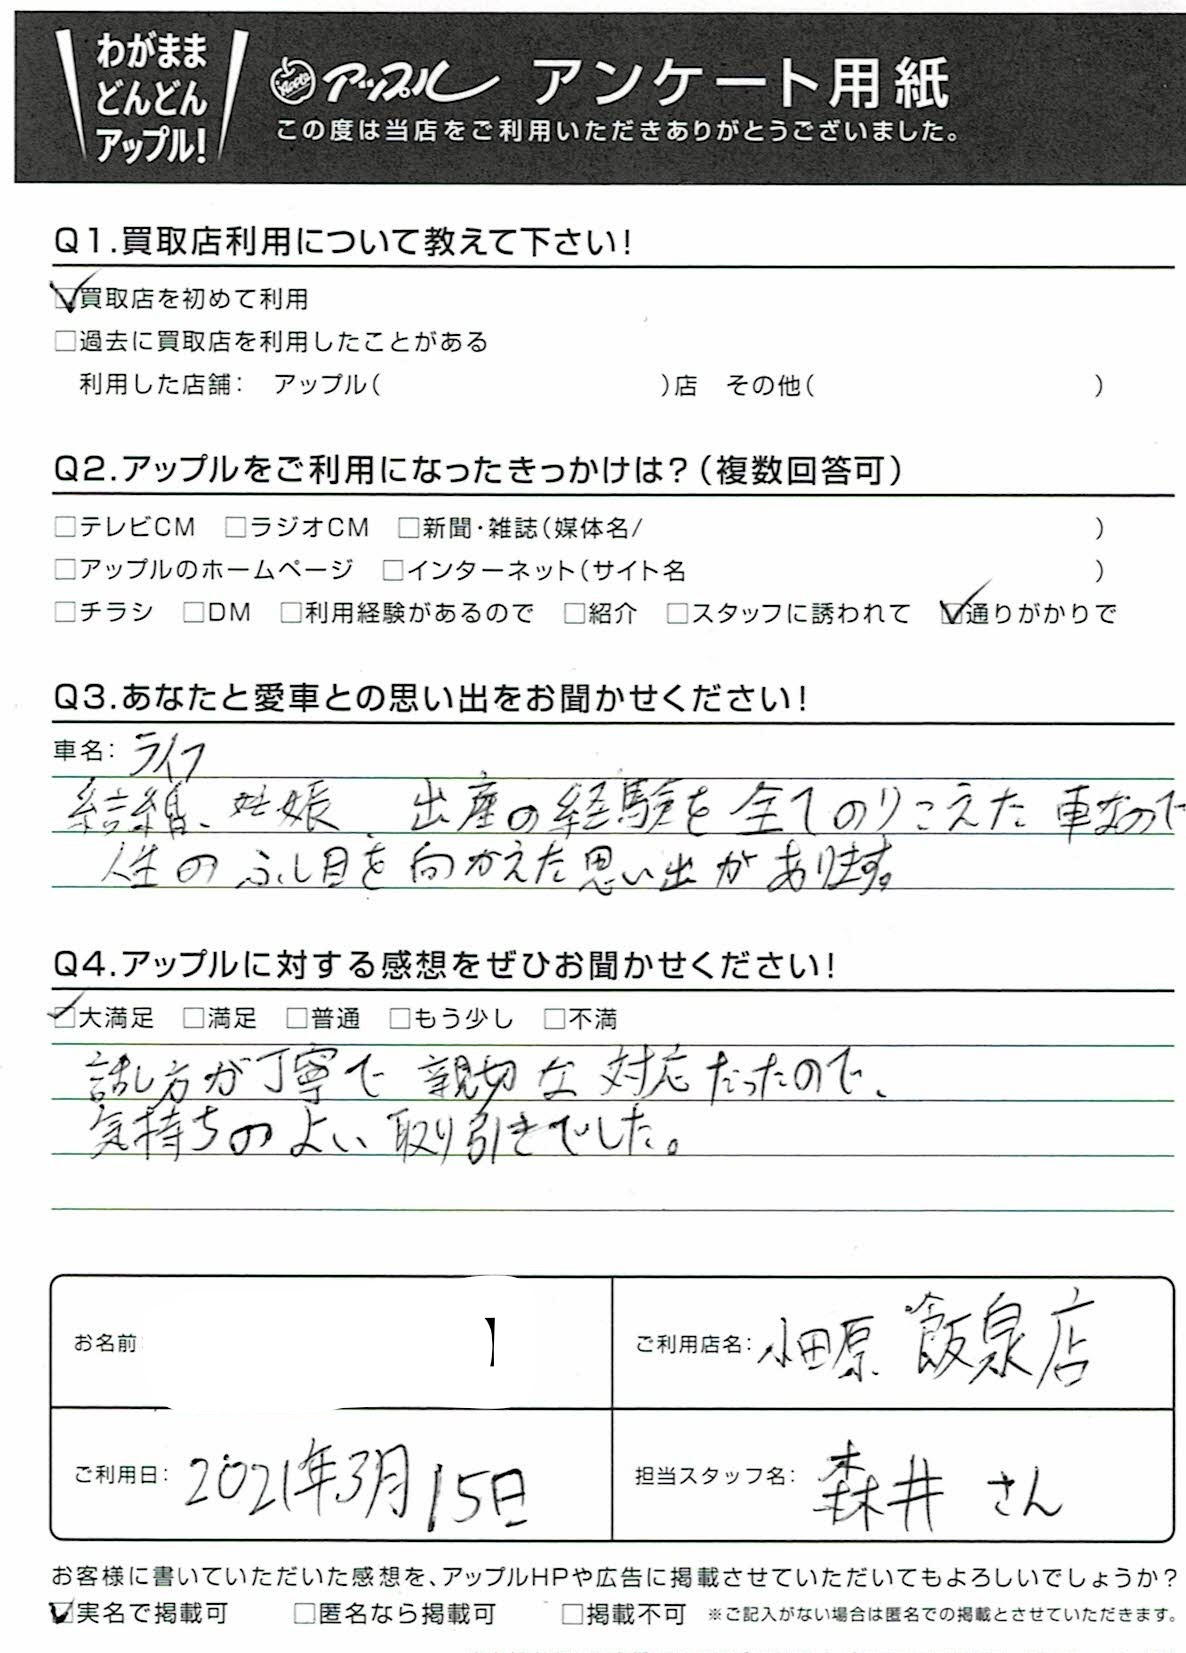 わがまま
どんどん
アップル!
Apple アップル アンケート用紙
この度は当店をご利用いただきありがとうございました。
Q1.買取店利用について教えて下さい!
☑買取店を初めて利用
□過去に買取店を利用したことがある
利用した店舗: アップル( )店 その他( )
Q2.アップルをご利用になったきっかけは?(複数回答可)
□テレビCM □ラジオCM □新聞・雑誌(媒体名/ )
□アップルのホームページ □インターネット(サイト名 )
□チラシ □DM □利用経験があるので □紹介 □スタッフに誘われて ☑通りがかりで
Q3.あなたと愛車との思い出をお聞かせください!
車名: ライフ
結婚、妊娠、出産の経験を全てのりこえた車なので
人生のふし目を向かえた思い出があります。
Q4.アップルに対する感想をぜひお聞かせください!
☑大満足 □満足 □普通 □もう少し □不満
話し方が丁寧で親切な対応だったので、
気持ちのよい取り引きでした。
お名前
ご利用店名: 小田原飯泉店
ご利用日: 2021年3月15日
担当スタッフ名: 森井さん
お客様に書いていただいた感想を、アップルHPや広告に掲載させていただいてもよろしいでしょうか?
☑実名で掲載可 □匿名なら掲載可 □掲載不可 ※ご記入がない場合は匿名での掲載とさせていただきます。